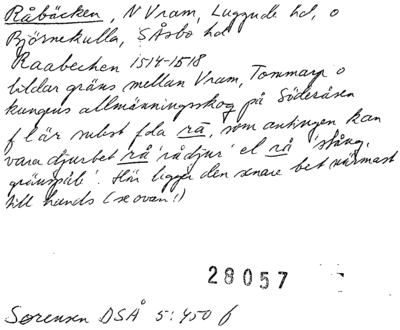 Råbäcken, N Vram, Luggude hd, o
Björnekulla, S Åsbo hd
Raabecken 1514-1518
bildar gräns mellan Vram, Tommarp o
kungens allmänningsskog på Söderåsen
f l är subst fda rā, som antingen kan
vara djurbet rå 'rådjur' el rå 'stång,
gränspåle'. Här ligger den senare bet närmast
till hands (se ovan!)
28057
Sørensen DSÅ 5:450 f